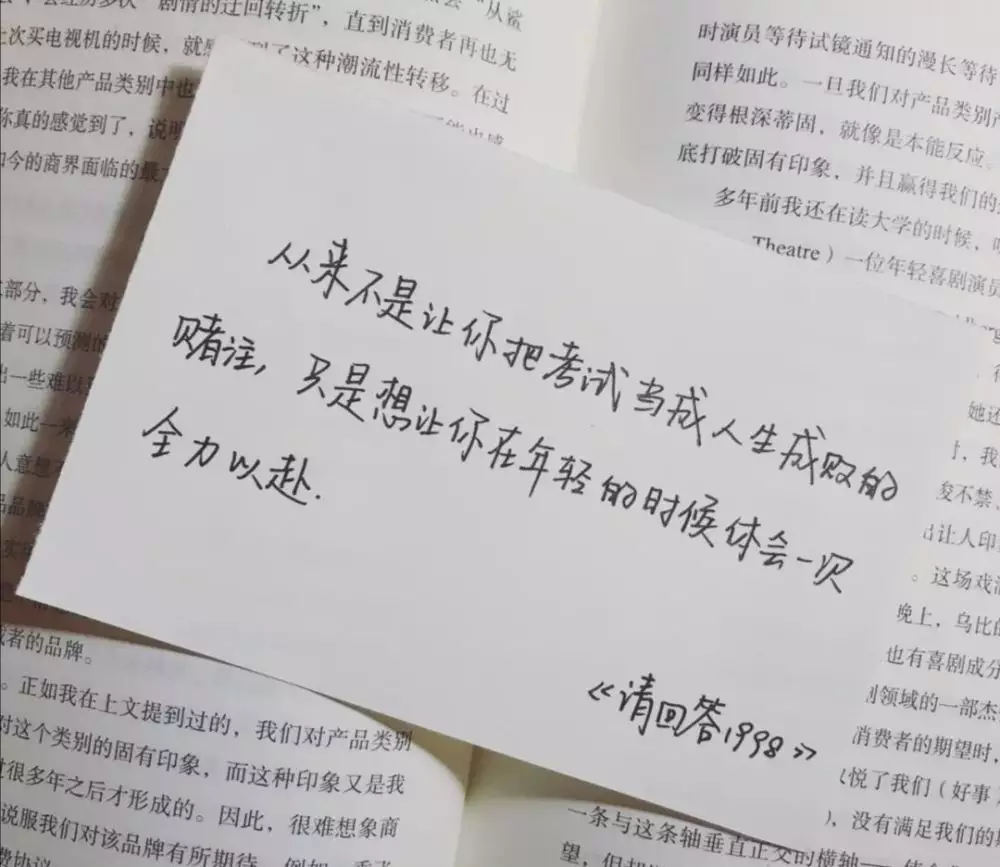 从来不是让你把考试当成人生成败的
赌注，只是想让你在年轻的时候体会一次
全力以赴.
《请回答1998》
剧情的迂回转折”，
“从鲨
直到消费者再也无
上次买电视机的时候，就
了这种潮流性转移。在过
我在其他产品类别中也
你真的感觉到了，说明
如今的商界面临的最
部分，我会对
着可以预测的
出一些难以
如此一来
人意想不
品品牌
者的品牌。
。正如我在上文提到过的，我们对产品类别
对这个类别的固有印象，而这种印象又是我
过很多年之后才形成的。因此，很难想象商
说服我们对该品牌有所期待，例如，
时演员等待试镜通知的漫长等待
同样如此。一旦我们对产品类别
变得根深蒂固，就像是本能反应。
底打破固有印象，并且赢得我们的
多年前我还在读大学的时候，
Theatre）一位年轻喜剧演员
她还
，我
俊不禁、
出让人印
。这场戏
晚上，乌比的
也有喜剧成分
别领域的一部杰
消费者的期望时，
以悦了我们（好事
），没有满足我们的
一条与这条轴垂直正交的横轴
望，但却